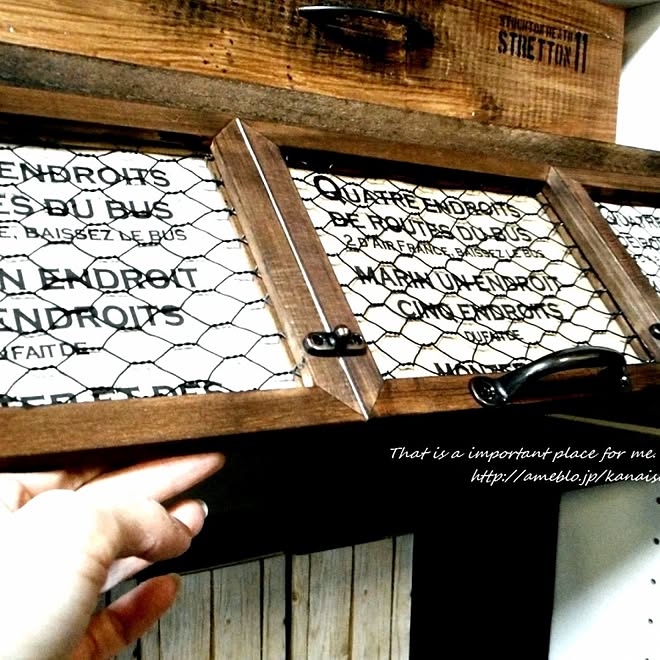 STRETTON 11
ENDROITS
ES DU BUS
E, BAISSEZ LE BUS
N ENDROIT
ENDROITS
UFAIT DE
QUATRE ENDROITS
DE ROUTES DU BUS
2 D'AIR FRANCE, BAISSEZ LE BUS
MARIN UN ENDROIT
CINQ ENDROITS
QUFAIT DE
MONTER
QUATRE
That is a important place for me.
http://ameblo.jp/kanais